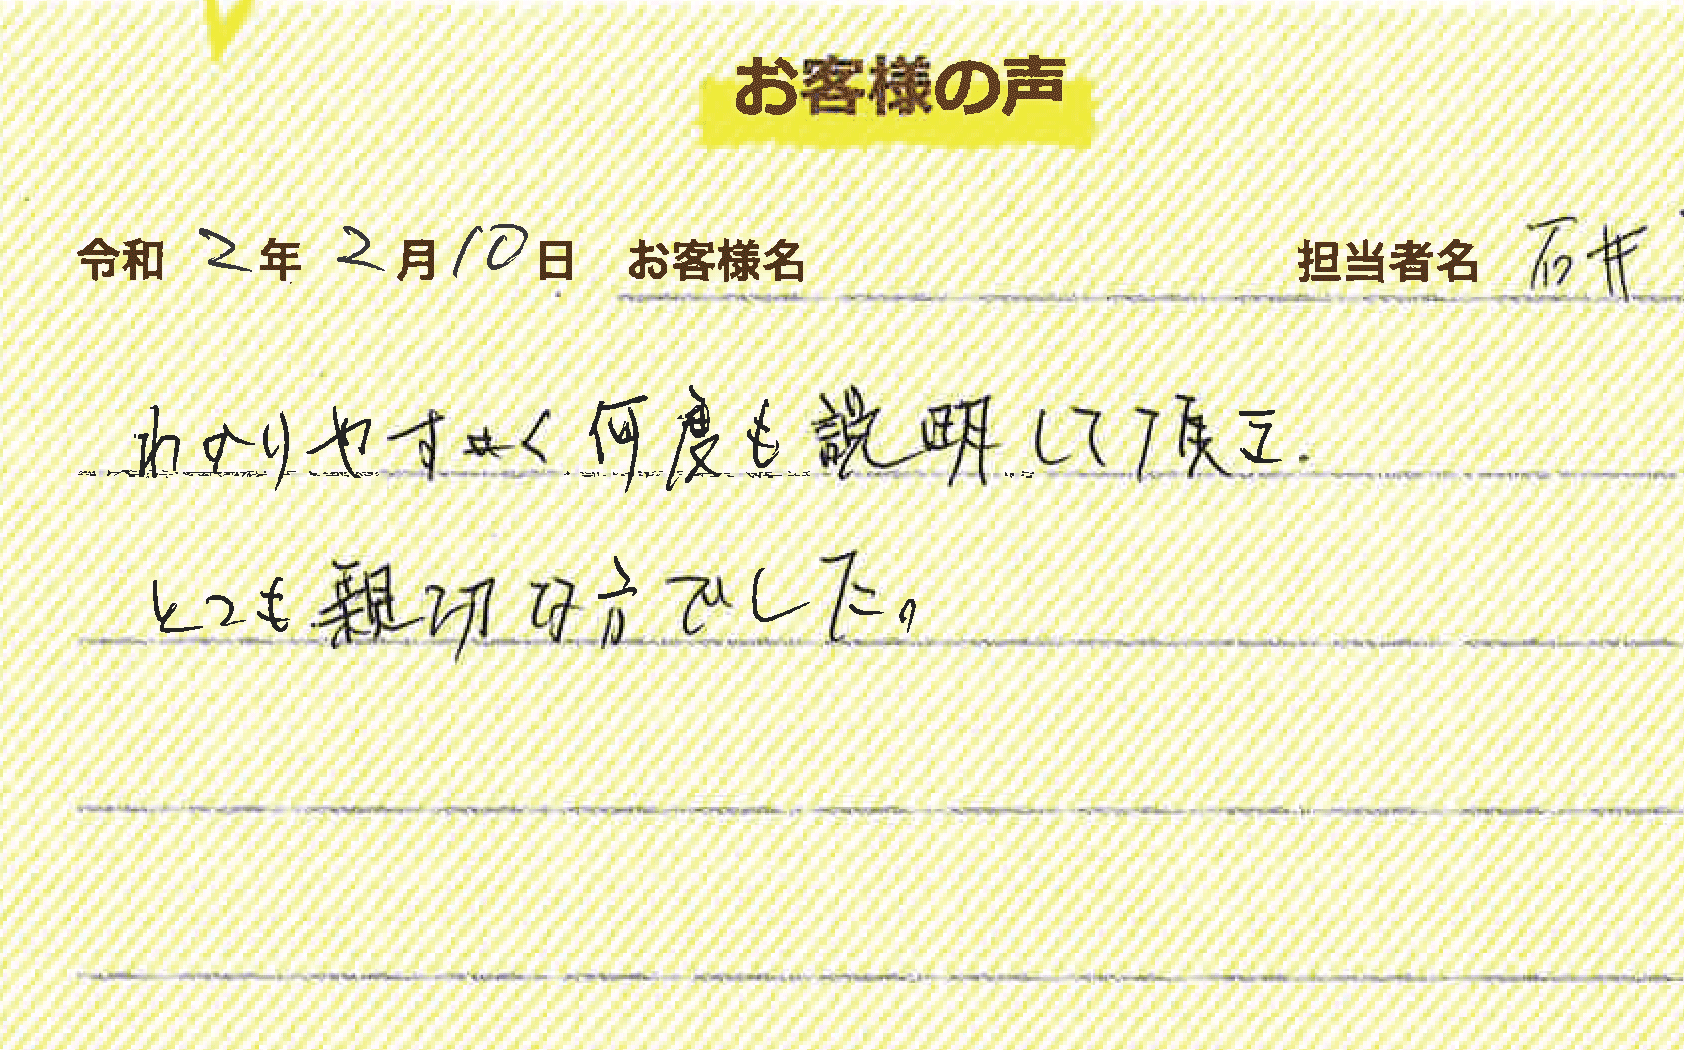 お客様の声
令和 2年 2月10日 お客様名 担当者名 石井
わかりやすく何度も説明して頂き、
とても親切な方でした。